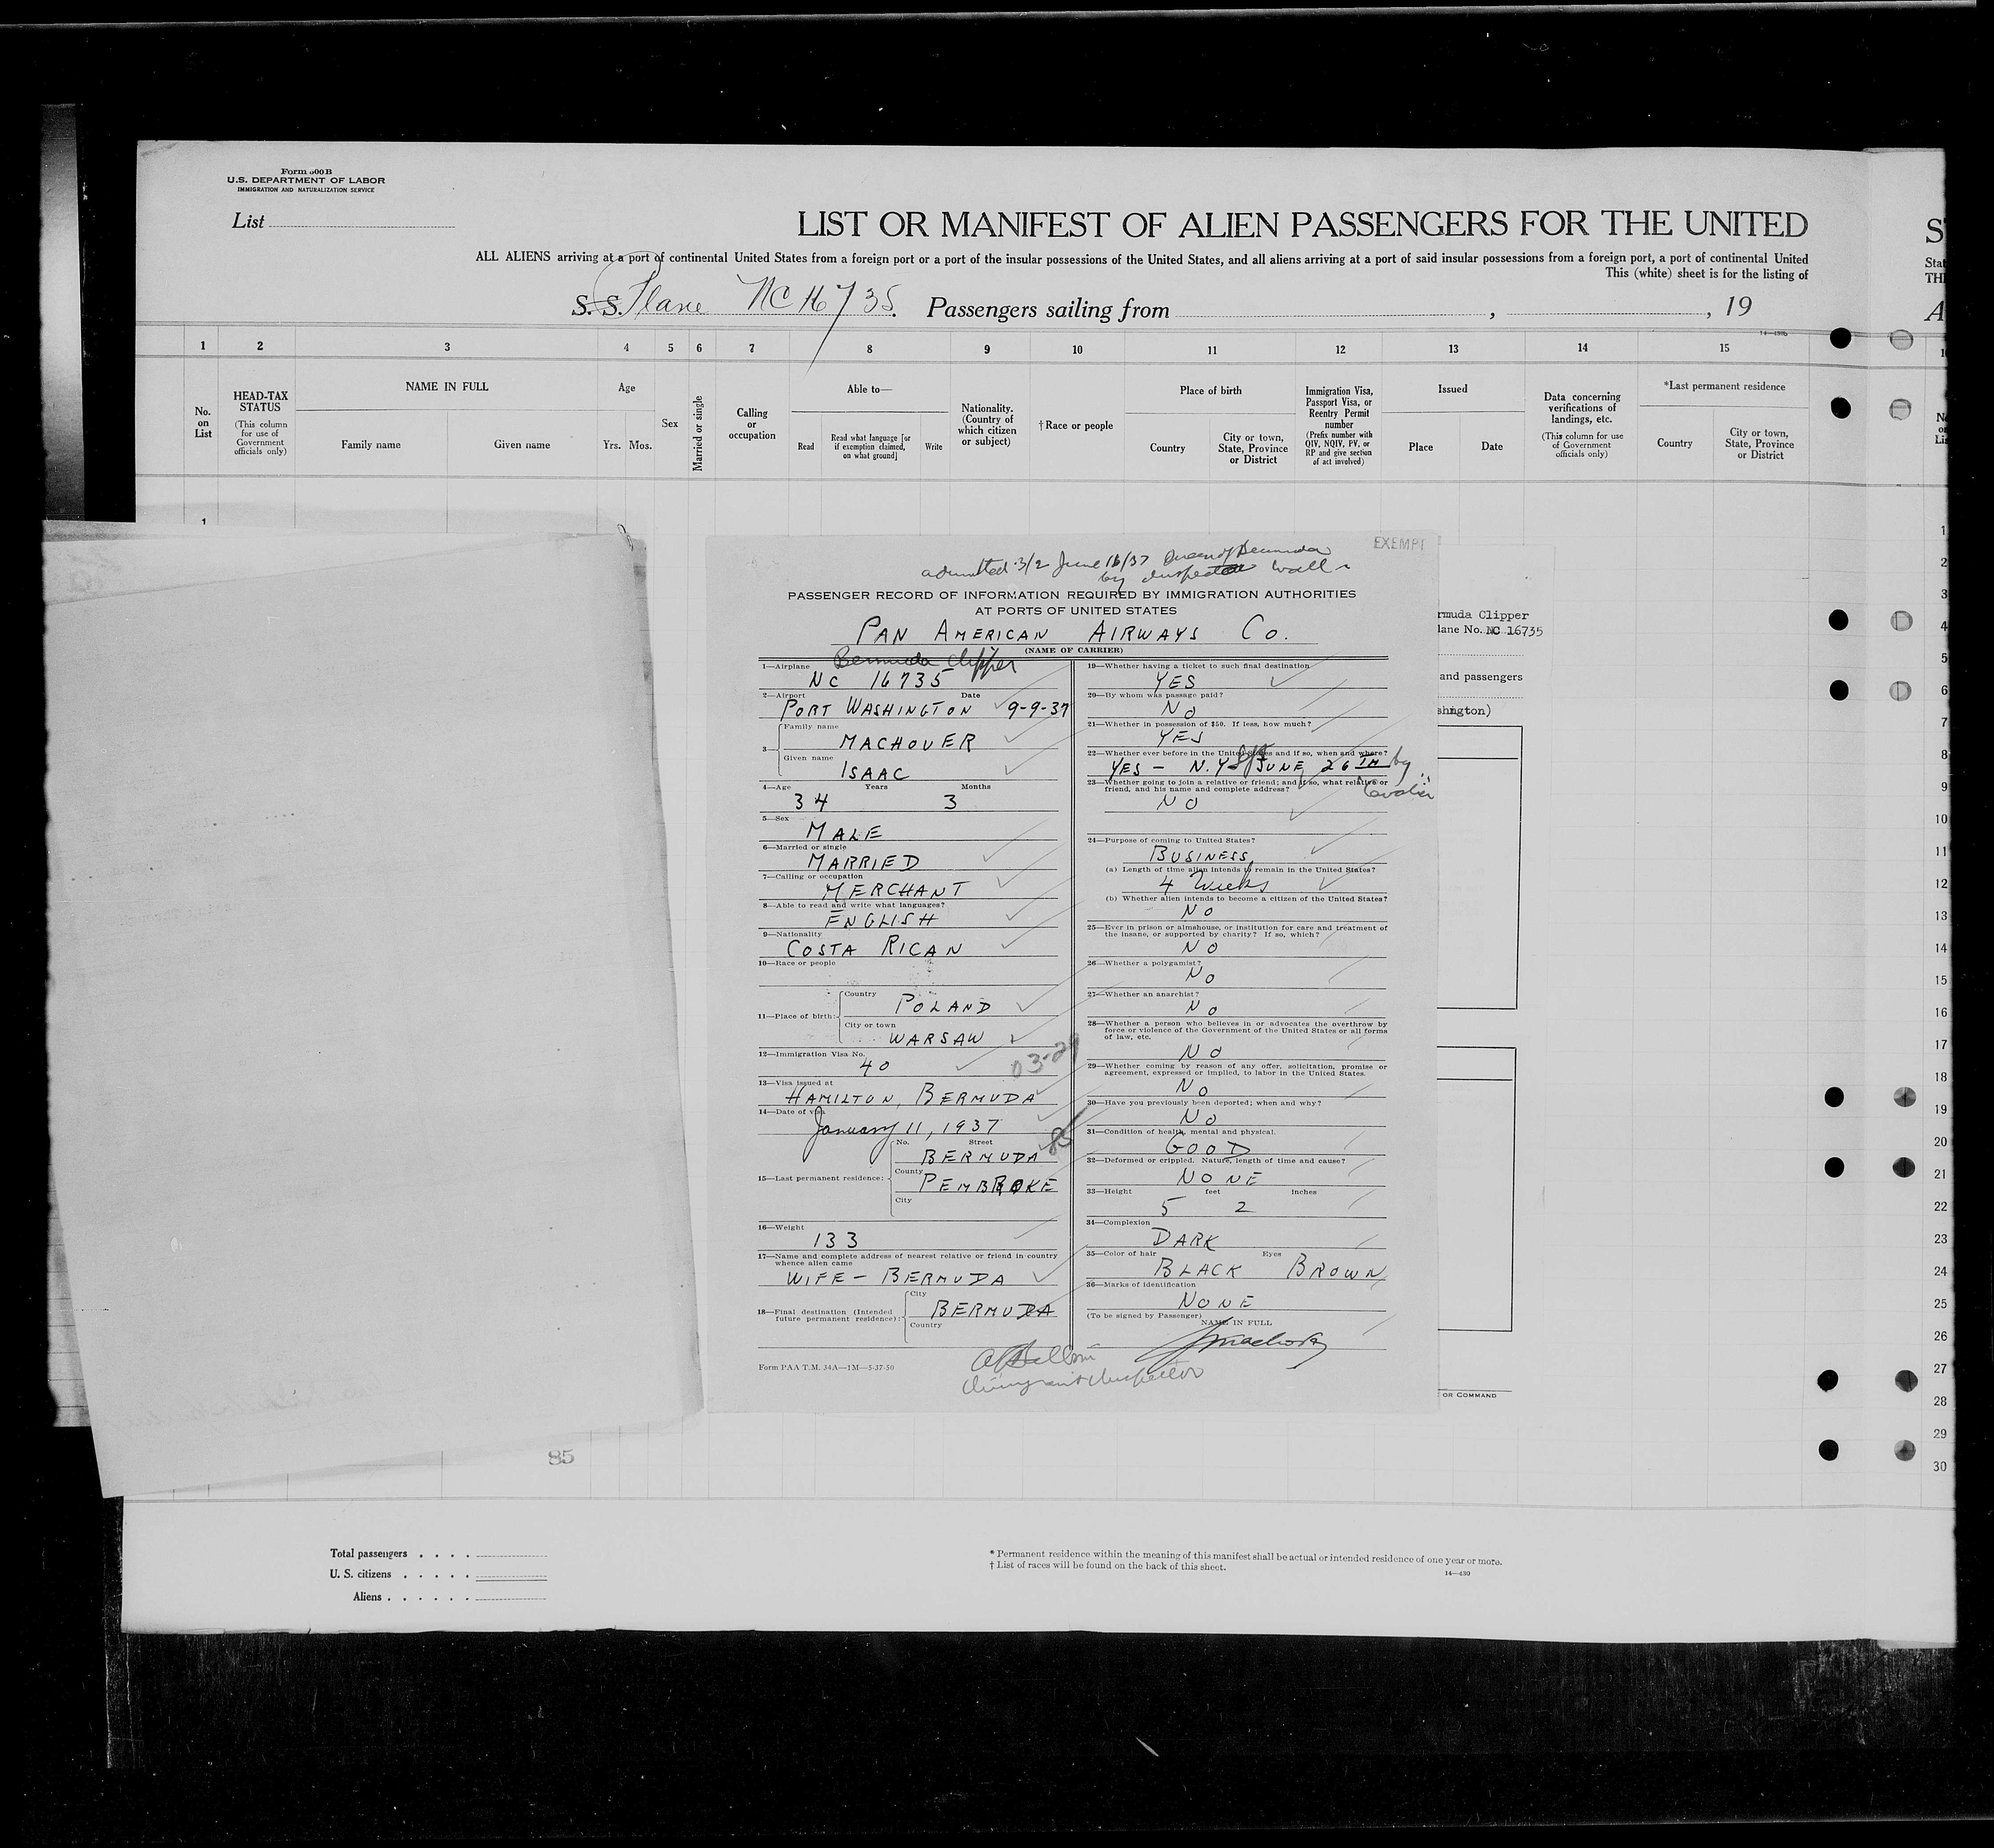 Form 500B
U.S. DEPARTMENT OF LABOR
IMMIGRATION AND NATURALIZATION SERVICE
List
LIST OR MANIFEST OF ALIEN PASSENGERS FOR THE UNITED
ALL ALIENS arriving at a port of continental United States from a foreign port or a port of the insular possessions of the United States, and all aliens arriving at a port of said insular possessions from a foreign port, a port of continental United
This (white) sheet is for the listing of
S. S. Plane NC 16735. Passengers sailing from , , 19
14—430b
1 2 3 4 5 6 7 8 9 10 11 12 13 14 15
No. on List
HEAD-TAX STATUS
(This column for use of Government officials only)
NAME IN FULL
Family name
Given name
Age
Yrs. Mos.
Sex
Married or single
Calling or occupation
Able to—
Read
Read what language [or if exemption claimed, on what ground]
Write
Nationality. (Country of which citizen or subject)
†Race or people
Place of birth
Country
City or town, State, Province or District
Immigration Visa, Passport Visa, or Reentry Permit number
(Prefix number with QIV, NQIV, PV, or RP and give section of act involved)
Issued
Place
Date
Data concerning verifications of landings, etc.
(This column for use of Government officials only)
*Last permanent residence
Country
City or town, State, Province or District
1
EXEMPT
admitted 3/2 June 16/37 Queen of Bermuda
by Inspector Wall
PASSENGER RECORD OF INFORMATION REQUIRED BY IMMIGRATION AUTHORITIES
AT PORTS OF UNITED STATES
PAN AMERICAN AIRWAYS CO.
(NAME OF CARRIER)
Bermuda Clipper
1—Airplane
NC 16735
2—Airport Date
PORT WASHINGTON 9-9-37
3— Family name
MACHOVER
Given name
ISAAC
4—Age Years Months
34 3
5—Sex
MALE
6—Married or single
MARRIED
7—Calling or occupation
MERCHANT
8—Able to read and write what languages?
ENGLISH
9—Nationality
COSTA RICAN
10—Race or people
11—Place of birth:
Country
POLAND
City or town
WARSAW
12—Immigration Visa No.
40
03-29
13—Visa issued at
HAMILTON, BERMUDA
14—Date of visa
January 11, 1937
15—Last permanent residence:
No. Street
BERMUDA
County
PEMBROKE
City
16—Weight
133
17—Name and complete address of nearest relative or friend in country
whence alien came
WIFE — BERMUDA
18—Final destination (Intended
future permanent residence):
City
BERMUDA
Country
Form PAA T.M. 34A—1M—5-37-50
19—Whether having a ticket to such final destination
YES
20—By whom was passage paid?
NO
21—Whether in possession of $50. If less, how much?
YES
22—Whether ever before in the United States and if so, when and where?
YES — N.Y. JUNE 26TH by
23—Whether going to join a relative or friend; and if so, what relative or
friend, and his name and complete address?
NO
24—Purpose of coming to United States?
BUSINESS
(a) Length of time alien intends to remain in the United States?
4 Weeks
(b) Whether alien intends to become a citizen of the United States?
NO
25—Ever in prison or almshouse, or institution for care and treatment of
the insane, or supported by charity? If so, which?
NO
26—Whether a polygamist?
NO
27—Whether an anarchist?
NO
28—Whether a person who believes in or advocates the overthrow by
force or violence of the Government of the United States or all forms
of law, etc.
NO
29—Whether coming by reason of any offer, solicitation, promise or
agreement, expressed or implied, to labor in the United States.
NO
30—Have you previously been deported; when and why?
NO
31—Condition of health, mental and physical.
GOOD
32—Deformed or crippled. Nature, length of time and cause?
NONE
33—Height feet inches
5 2
34—Complexion
DARK
35—Color of hair Eyes
BLACK BROWN
36—Marks of identification
NONE
(To be signed by Passenger)
NAME IN FULL
Immigrant Inspector
rmuda Clipper
lane No. NC 16735
and passengers
shington)
OR COMMAND
85
Total passengers
U. S. citizens
Aliens
* Permanent residence within the meaning of this manifest shall be actual or intended residence of one year or more.
† List of races will be found on the back of this sheet.
14—430
S
Stat
THI
A
1
2
3
4
5
6
7
8
9
10
11
12
13
14
15
16
17
18
19
20
21
22
23
24
25
26
27
28
29
30